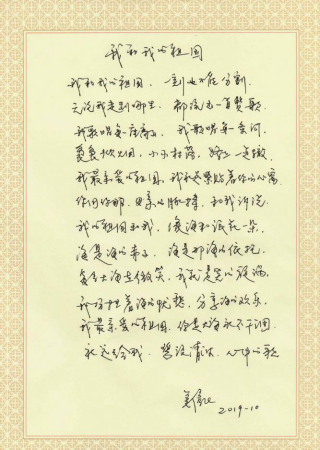 我和我的祖国
我和我的祖国,一刻也不能分割
无论我走到哪里,都流出一首赞歌
我歌唱每座高山,我歌唱每一条河
袅袅炊烟,小小村落,路上一道辙
我最亲爱的祖国,我永远紧贴着你的心窝
你用你那母亲的脉搏,和我诉说
我的祖国和我,像海和浪花一朵
浪是海的赤子,海是那海的依托
每当大海在微笑,我就是笑的旋涡
我分担着海的忧愁,分享海的欢乐
我最亲爱的祖国,你是大海永不干涸
永远给我,碧浪清波,心中的歌
2019.10